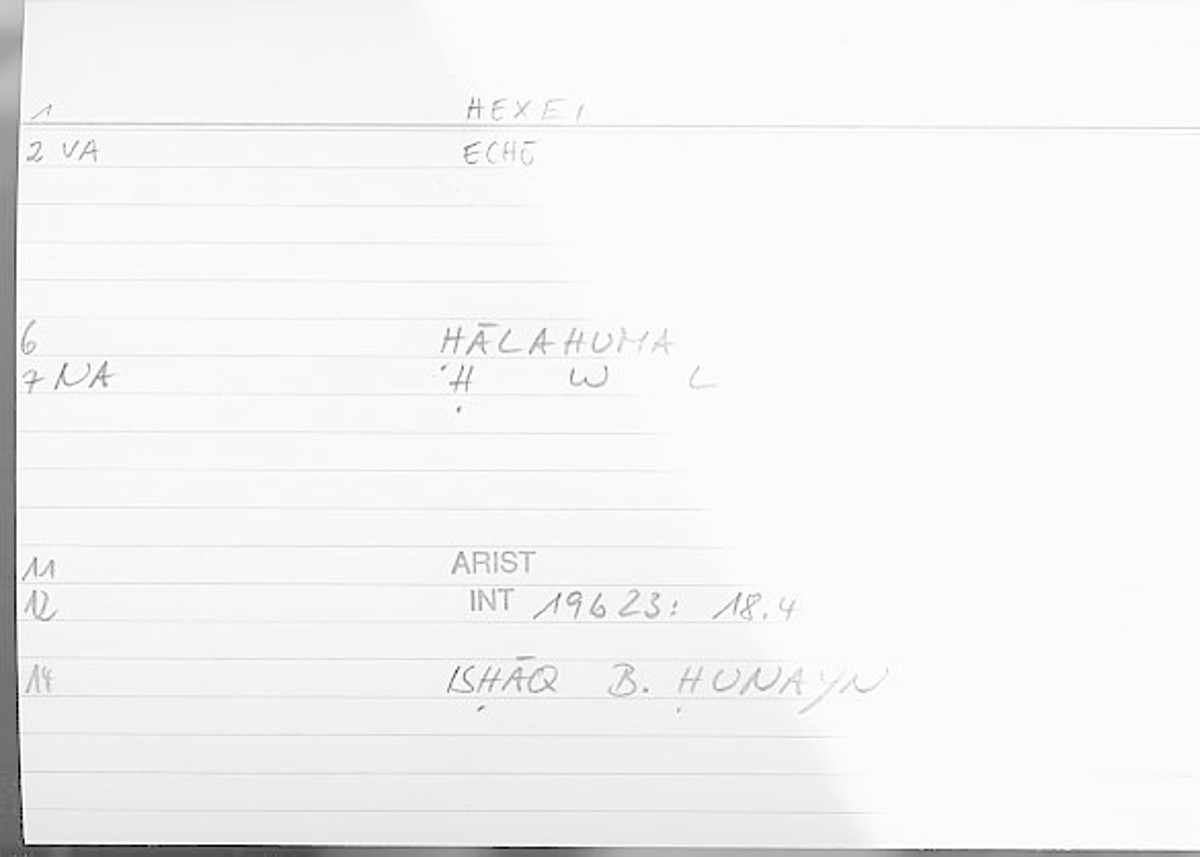 1 HEXEI
2 VA ECHŌ
6 HĀLAHUMA
7 NA Ḥ W L
11 ARIST
12 INT 19b23: 18.4
14 ISḤĀQ B. ḤUNAYN